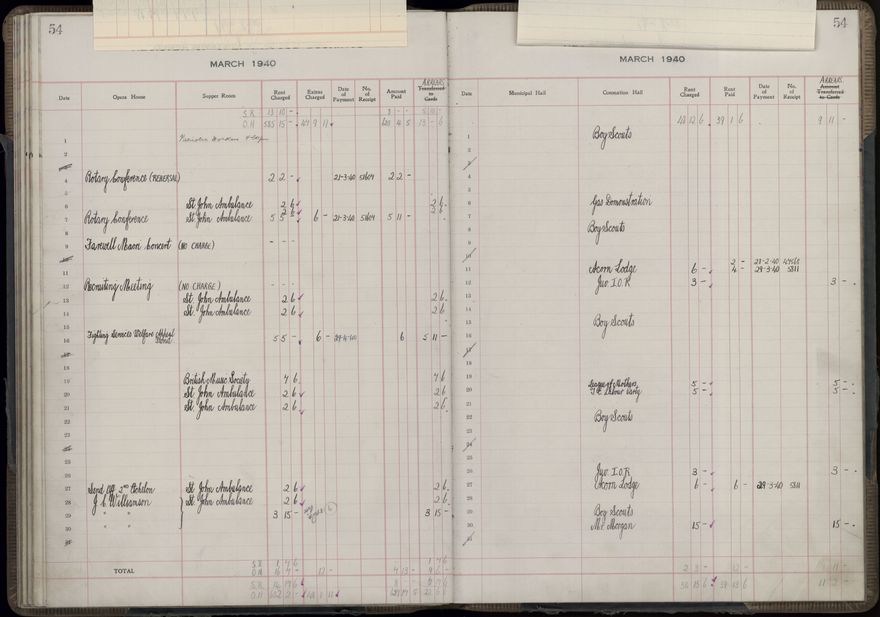 54
MARCH 1940
Date Opera House Supper Room Rent Charged Extras Charged Date of Payment No. of Receipt Amount Paid ARREARS Transferred to Cards
S.R. 13 10 -
O.H 585 15 -
1
2
3
4 Rotary Conference (REHERSAL) 2 2 - 21-3-40 5404 2 2 -
5
6 St. John Ambulance 2 6 2 6
7 Rotary Conference St. John Ambulance 5 5 - 2 6 6 - 21-3-40 5404 5 11 - 2 6
8
9 Farewell Maori Concert (NO CHARGE) - - -
10
11
12 Recruiting Meeting (NO CHARGE) - - -
13 St. John Ambulance 2 6 2 6
14 St. John Ambulance 2 6 2 6
15
16 Fighting Services Welfare Appeal 5 5 - 6 - 6 5 11 -
17
18
19 British Music Society 7 6 7 6
20 St. John Ambulance 2 6 2 6
21 St. John Ambulance 2 6 2 6
22
23
24
25
26
27 Send Off 2ND Echelon St. John Ambulance 2 6 2 6
28 J. C. Williamson St. John Ambulance 2 6 2 6
29 " " 3 15 - 3 15 -
30 " "
31
TOTAL S.R. 1 7 6
O.H
S.R
O.H
54
MARCH 1940
Date Municipal Hall Coronation Hall Rent Charged Rent Paid Date of Payment No. of Receipt ARREARS Amount Transferred to Cards
39 1 6 9 11 -
1 Boy Scouts
2
3
4
5
6 Gas Demonstration
7
8 Boy Scouts
9
10
11 Acorn Lodge 6 - 2 - 4 - 29-3-40 5811
12 Juv. I.O.R 3 - 3 -
13
14
15 Boy Scouts
16
17
18
19
20 League of Mothers 5 - 5 -
Labour Party 5 - 5 -
21
22 Boy Scouts
23
24
25
26 Juv. I.O.R 3 - 3 -
27 Acorn Lodge 6 - 6 - 29-3-40 5811
28
29 Boy Scouts
30 Mr. Morgan 15 - 15 -
31